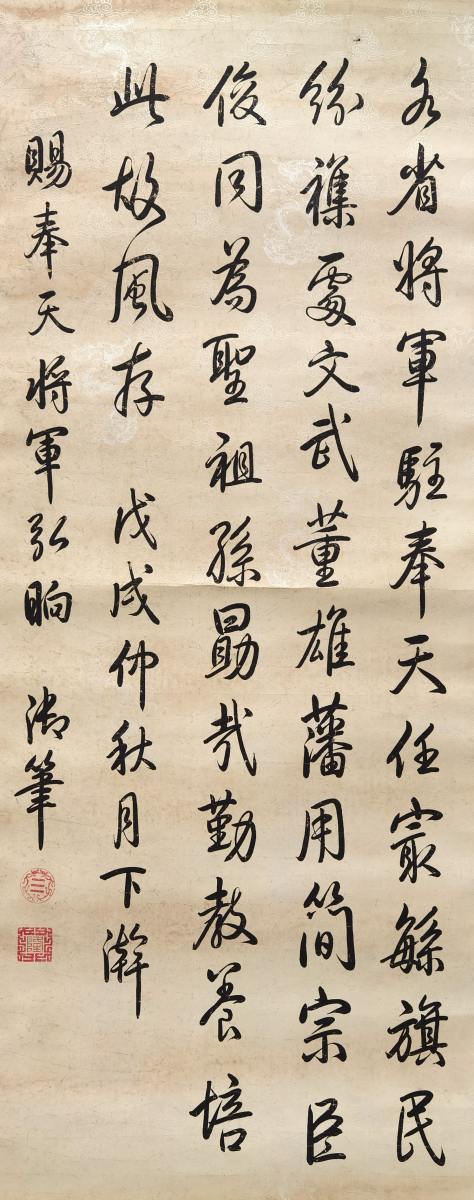 各省將軍駐奉天任冣繇旗民
紛襍處文武董雄藩用簡宗臣
俊同為聖祖孫勗哉勤教養培
此故風存 戊戌仲秋月下澣
賜奉天將軍弘晌 御筆